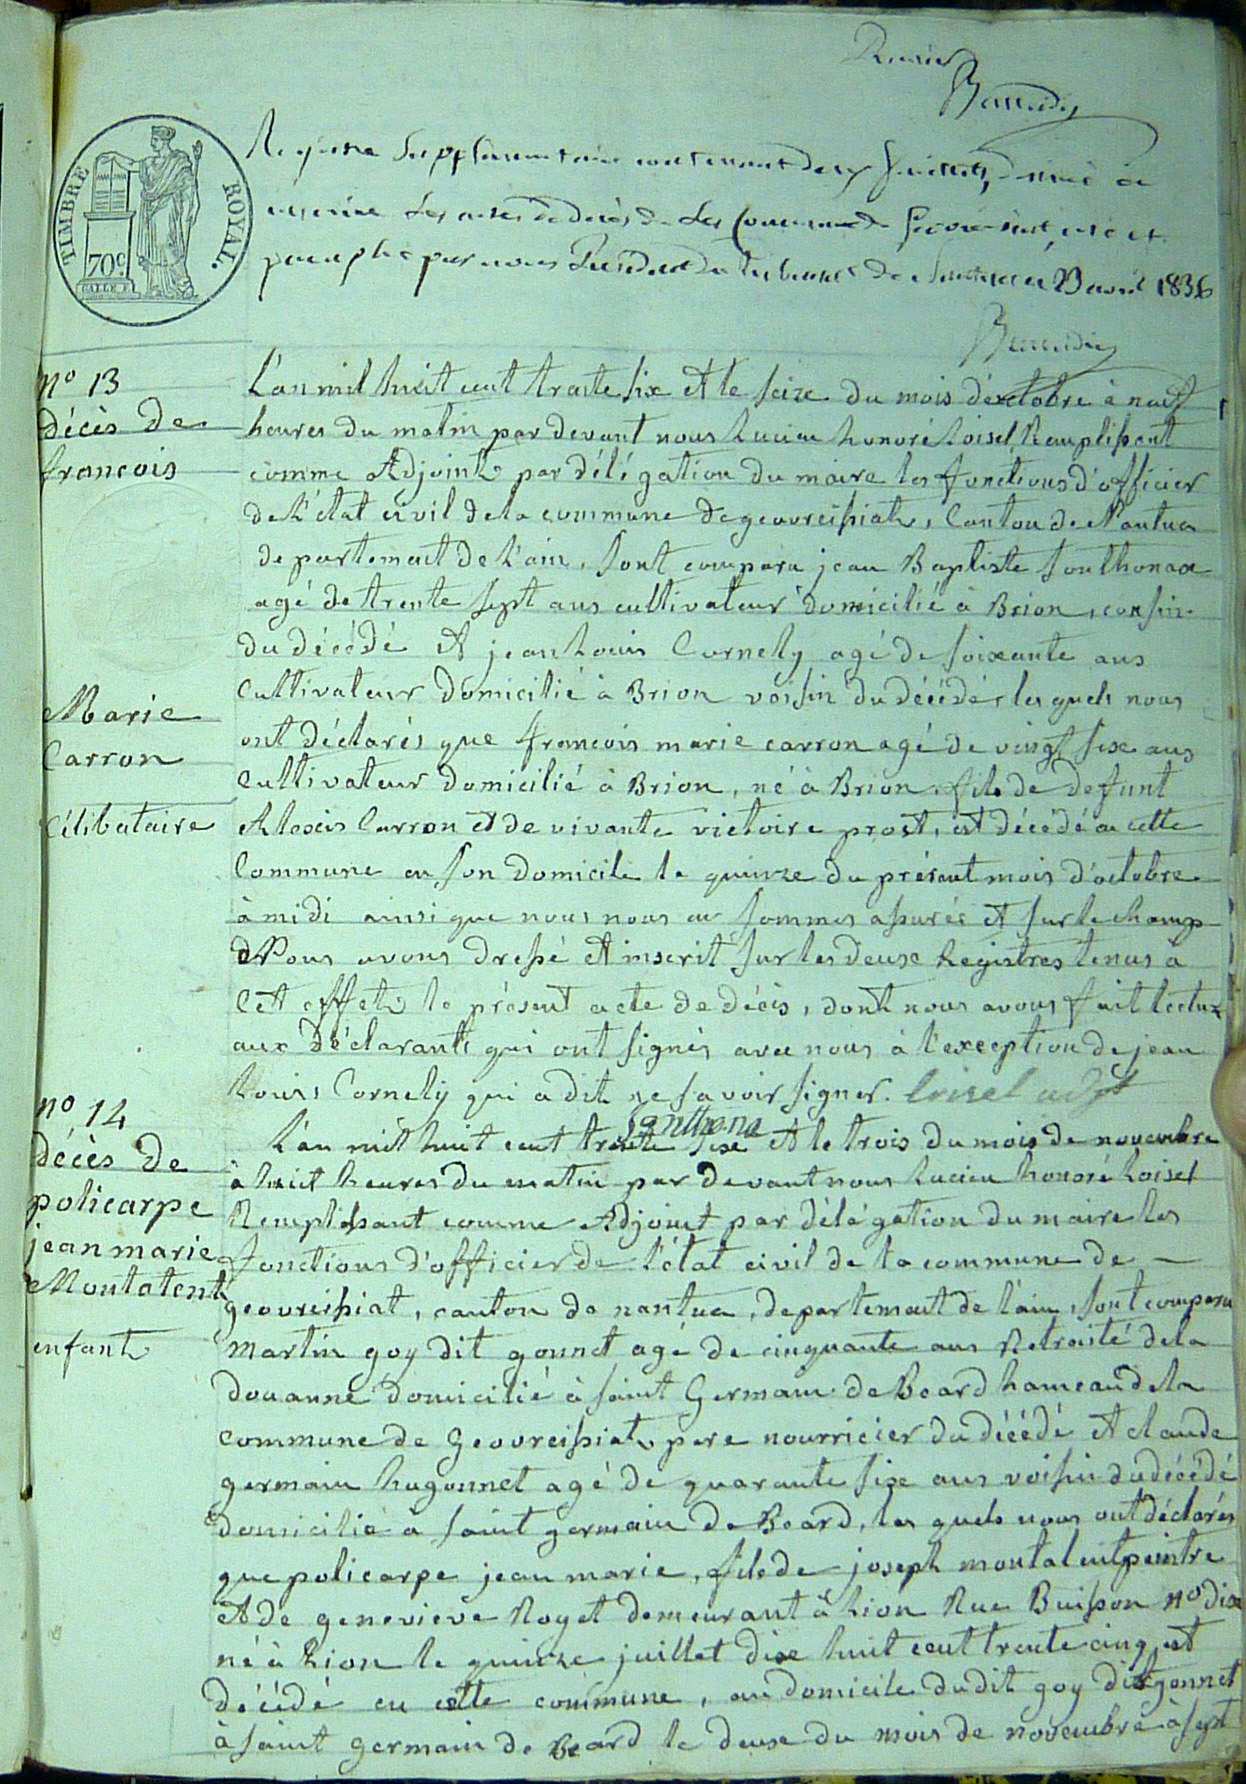 Premier
TIMBRE ROYAL.
70c
Registre supplémentaire contenant deux feuillets, destiné à
inscrire les actes de décès de la Commune de Geovreissiat, coté et
paraphé par nous Président du tribunal de Nantua le 23 avril 1836
n° 13
décès de
francois
Marie
Carron
Célibataire
L'an mil huit cent trente six et le seize du mois d'octobre à neuf
heures du matin par devant nous Lucien honoré Loisel Remplissant
comme Adjoint par délégation du maire les fonctions d'officier
de l'état civil de la commune de geovreissiat, Canton de Nantua
departement de l'ain, sont comparu jean Baptiste Sonthonax
agé de trente sept ans cultivateur domicilié à Brion, cousin
du décédé et jean Louis Cornely agé de soixante ans
Cultivateur domicilié à Brion voisin du décédé, les quels nous
ont déclarés que francois marie carron agé de vingt six ans
Cultivateur domicilié à Brion, né à Brion, fils de defunt
Alexis Carron et de vivante victoire prost, est décédé en cette
Commune en son domicile le quinze du présent mois d'octobre
à midi ainsi que nous nous en sommes assurés et sur le champ
Nous avons dressé et inscrit sur les deux Registres tenus à
cet effet le présent acte de décès, dont nous avons fait lecture
aux déclarants qui ont signés avec nous à l'exception de jean
Louis Cornely qui a dit ne savoir signer. Loisel adjt
Santhona
n° 14
décès de
policarpe
jean marie
Montalent
enfant
L'an mil huit cent trente six et le trois du mois de novembre
à huit heures du matin par devant nous Lucien honoré Loisel
Remplissant comme Adjoint par délégation du maire les
fonctions d'officier de l'état civil de la commune de
geovreissiat, canton de nantua, departement de l'ain, sont comparu
Martin goy dit gonnet agé de cinquante ans Retraité de la
douanne domicilié à saint Germain de Beard hameau de la
commune de Geovreissiat, pere nourricier du décédé et claude
germain hugonnet agé de quarante six ans voisin du décédé
domicilié à saint germain de Beard, les quels nous ont déclarés
que policarpe jean marie, fils de joseph montalent peintre
et de genevieve Royet demeurant à Lion Rue Buisson n° dix
né à Lion le quinze juillet dix huit cent trente cinq, est
décédé en cette commune, au domicile dudit goy dit gonnet
à saint germain de Beard le deux du mois de novembre à sept